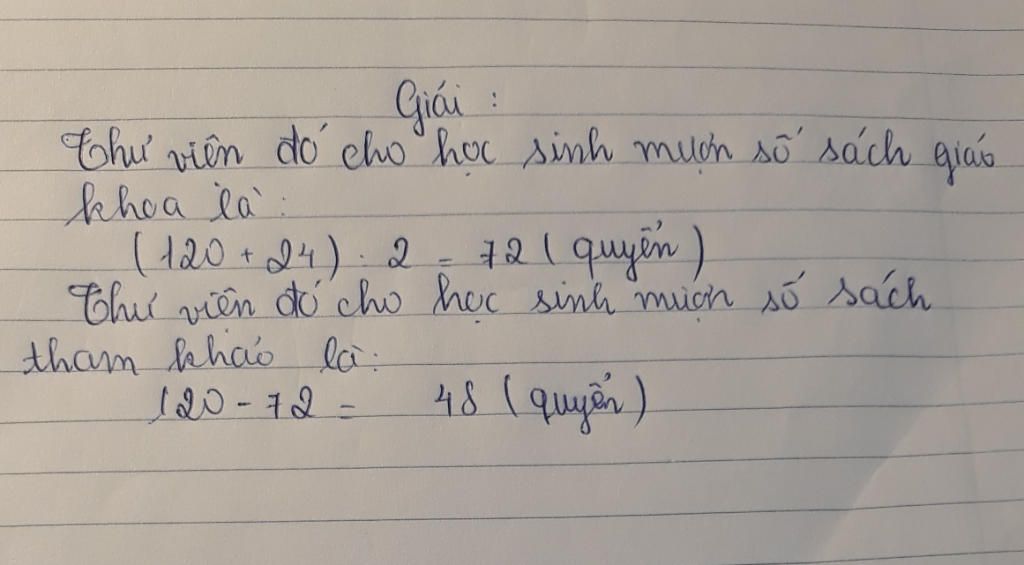 Giải :
Thư viện đó cho học sinh mượn số sách giáo
khoa là :
(120 + 24) : 2 = 72 ( quyển )
Thư viện đó cho học sinh mượn số sách
tham khảo là :
120 - 72 = 48 ( quyển )